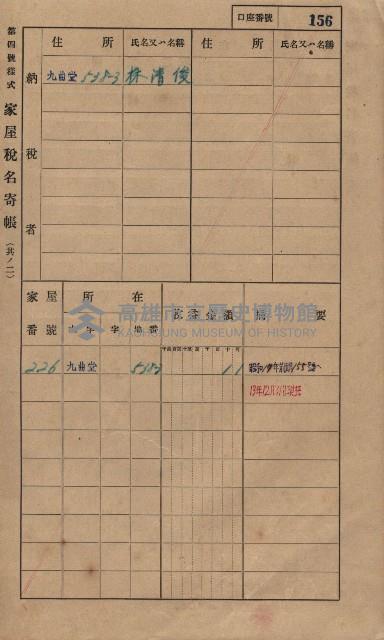 口座番號 156
第四號樣式 家屋稅名寄帳 (其ノ二)
納稅者
住所 氏名又ハ名稱 住所 氏名又ハ名稱
九曲堂 5383 林清俊
家屋番號 所在 摘要
大字 字 地番
高雄市立歷史博物館
KAOHSIUNG MUSEUM OF HISTORY
226 九曲堂 11